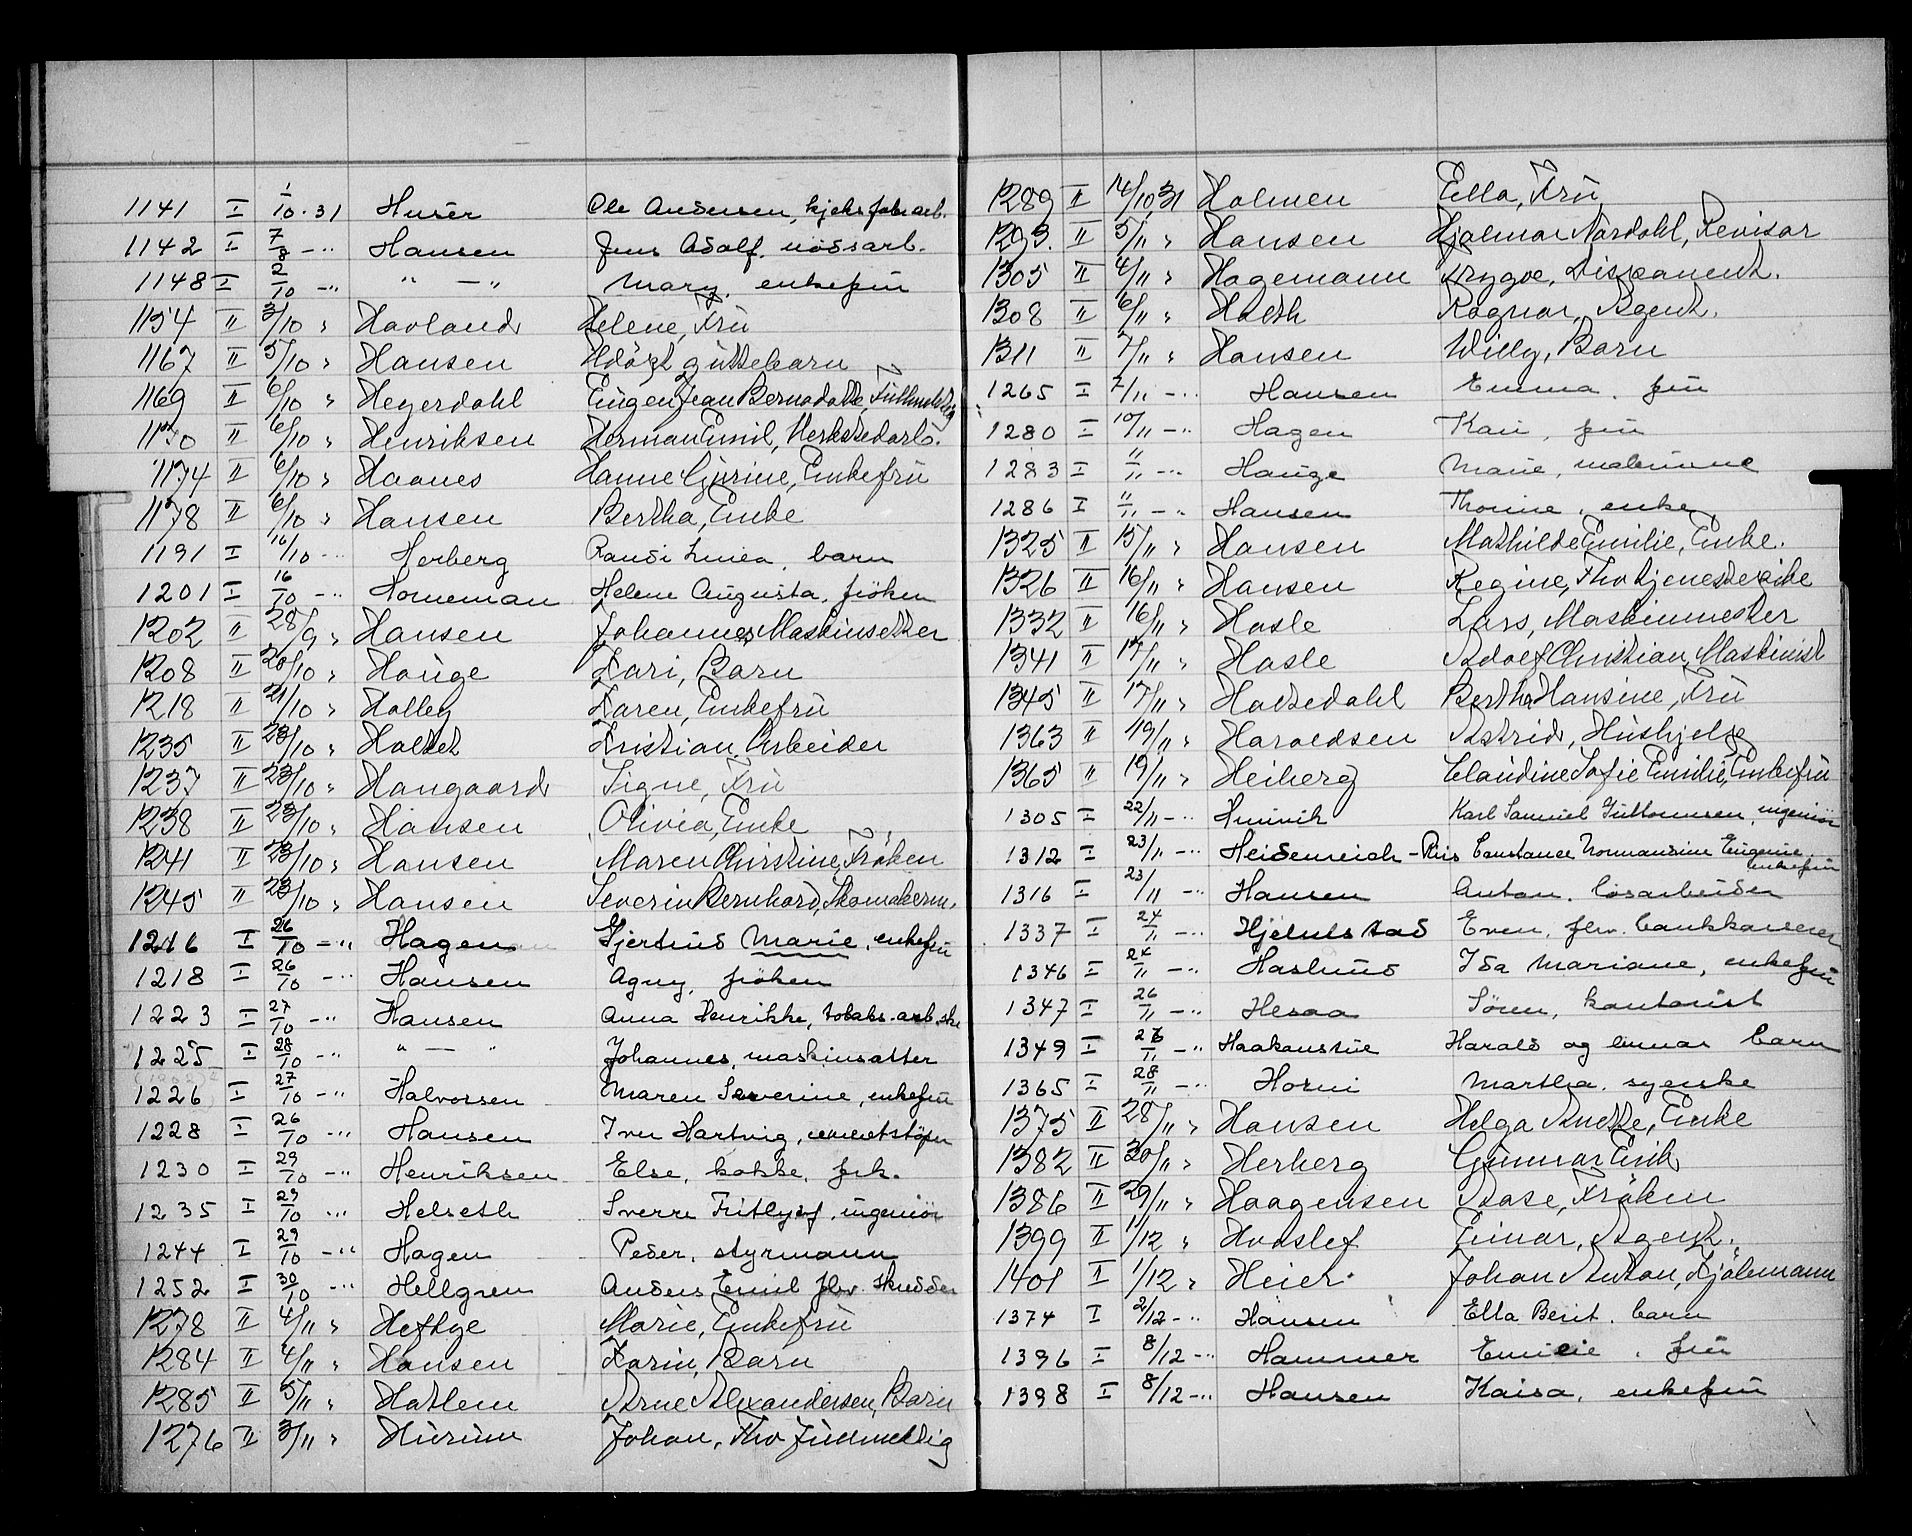 1141 I 1/10-31 Huser Ole Andersen, kjeksfabr.arb.
1142 I 7/8 -"- Hansen Jens Adolf. nödsarb.
1148 I 2/10 -"- " — " Mary, enkefru
1154 II 3/10 " Havland Helene, Fru
1167 II 5/10 " Hansen Udöpt guttebarn
1169 II 6/10 " Heyerdahl Eugen Jean Bernadotte, Fullmektig
1170 II 6/10 " Henriksen Herman Emil, Verkstedarb.
1174 II 6/10 " Haanes Hanne Gurine, Enkefru
1178 II 6/10 " Hansen Bertha, Enke
1191 I 16/10 -"- Herberg Randi Linea, barn
1201 I 16/10 -"- Horneman Helene Augusta, fröken
1202 II 28/9 " Hansen Johannes, Maskinsetter
1208 II 20/10 " Hauge Kari, Barn
1218 II 21/10 " Holley Karen, Enkefru
1235 II 23/10 " Holtet Kristian, Arbeider
1237 II 23/10 " Haugaard Signe, Fru
1238 II 23/10 " Hansen Olivia, Enke
1241 II 23/10 " Hansen Maren Christine, Fröken
1245 II 23/10 " Hansen Severin Bernhard, Skomakerm.
1216 I 26/10 -"- Hagen Gjertrud Marie, enkefru
1218 I 26/10 -"- Hansen Agny, fröken
1223 I 27/10 -"- Hansen Anna Henrikke, tobaks-arb.ske
1225 I 28/10 -"- " — " Johannes, maskinsatter
1226 I 27/10 -"- Halvorsen Maren Severine, enkefru
1228 I 26/10 -"- Hansen Iver Hartvig, cementstöper
1230 I 29/10 -"- Henriksen Else, kokke, frk.
1235 I 29/10 -"- Helseth Sverre Fritljof, ingeniör
1244 I 29/10 -"- Hagen Peder, styrmann
1252 I 30/10 -"- Hellgren Anders Emil fhv. skredder
1278 II 4/11 " Heftye Marie, Enkefru
1284 II 4/11 " Hansen Karin, Barn
1285 II 5/11 " Hatlem Arne Alexandersen, Barn
1276 II 3/11 " Hurum Johan, Fhv Fullmektig
1289 II 14/10, 31 Holmen Ella, Fru
1293. II 5/11 " Hansen Hjalmar Nordahl, Revisor
1305 II 4/11 " Hagemann Trygve, Disponent.
1308 II 6/11 " Holth Ragnar, Agent.
1311 II 7/11 " Hansen Willy, Barn
1265 I 7/11 -"- Hansen Emma, fru
1280 I 10/11 -"- Hagen Kari, fru
1283 I 11/11 -"- Hauge Marie, malerinne
1286 I 11/11 -"- Hansen Thorine, enke,
1325 II 15/11 " Hansen Mathilde Emilie, Enke.
1326 II 16/11 " Hansen Regine, Fhv tjenestepike
1332 II 16/11 " Hasle Lars, Maskinmester
1341 II 17/11 " Hasle Adolf Christian, Maskinist
1345 II 17/11 " Hattedahl Bertha Hansine, Fru
1363 II 19/11 " Haroldsen Astrid, Hushjelp
1365 II 19/11 " Heiberg Claudine Sofie Emilie, Enkefru
1305 I 22/11 -"- Hunvik Karl Samuel Guttormsen, ingeniör
1312 I 23/11 -"- Heidenreich-Riis Constance Normandine Eugenie, enkefru
1316 I 23/11 -"- Hansen Anton, lösarbeider
1337 I 24/11 -"- Hjelmstad Even, fhv. bankkasserer
1346 I 24/11 -"- Haslund Ida Mariane, enkefru
1347 I 26/11 -"- Hesaa Sören, kontorist
1349 I 26/11 -"- Haakonstue Harald og Einar barn
1365 I 28/11 -"- Horni Martha, syerske
1375 II 28/11 " Hansen Helga Anette, Enke
1382 II 30/11 " Herberg Gunnar Erik
1386 II 29/11 " Haagensen Aase, Fröken
1399 II 1/12 " Hvaslef Einar, Agent.
1401 II 1/12 " Heier Johan Anton, Kjölemann
1374 I 2/12 -"- Hansen Ella Berit, barn
1396 I 8/12 -"- Hammer Emilie, fru
1398 I 8/12 -"- Hansen Kaisa, enkefru